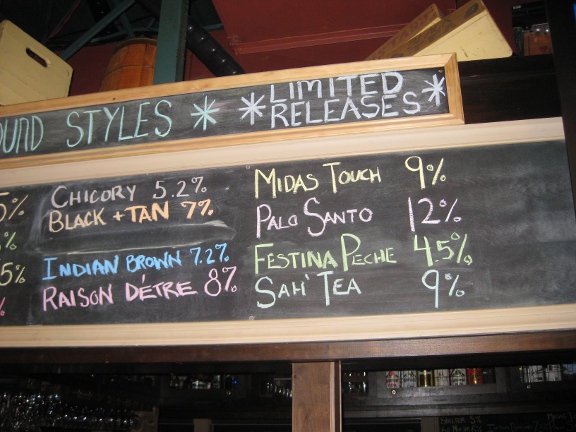 STYLES
* * LIMITED RELEASES *
5%
%
5%
%
CHICORY 5.2%
BLACK + TAN 7%
INDIAN BROWN 7.2%
RAISON D'ÉTRE 8%
MIDAS TOUCH 9%
PALO SANTO 12%
FESTINA PECHE 4.5%
SAH' TEA 9%